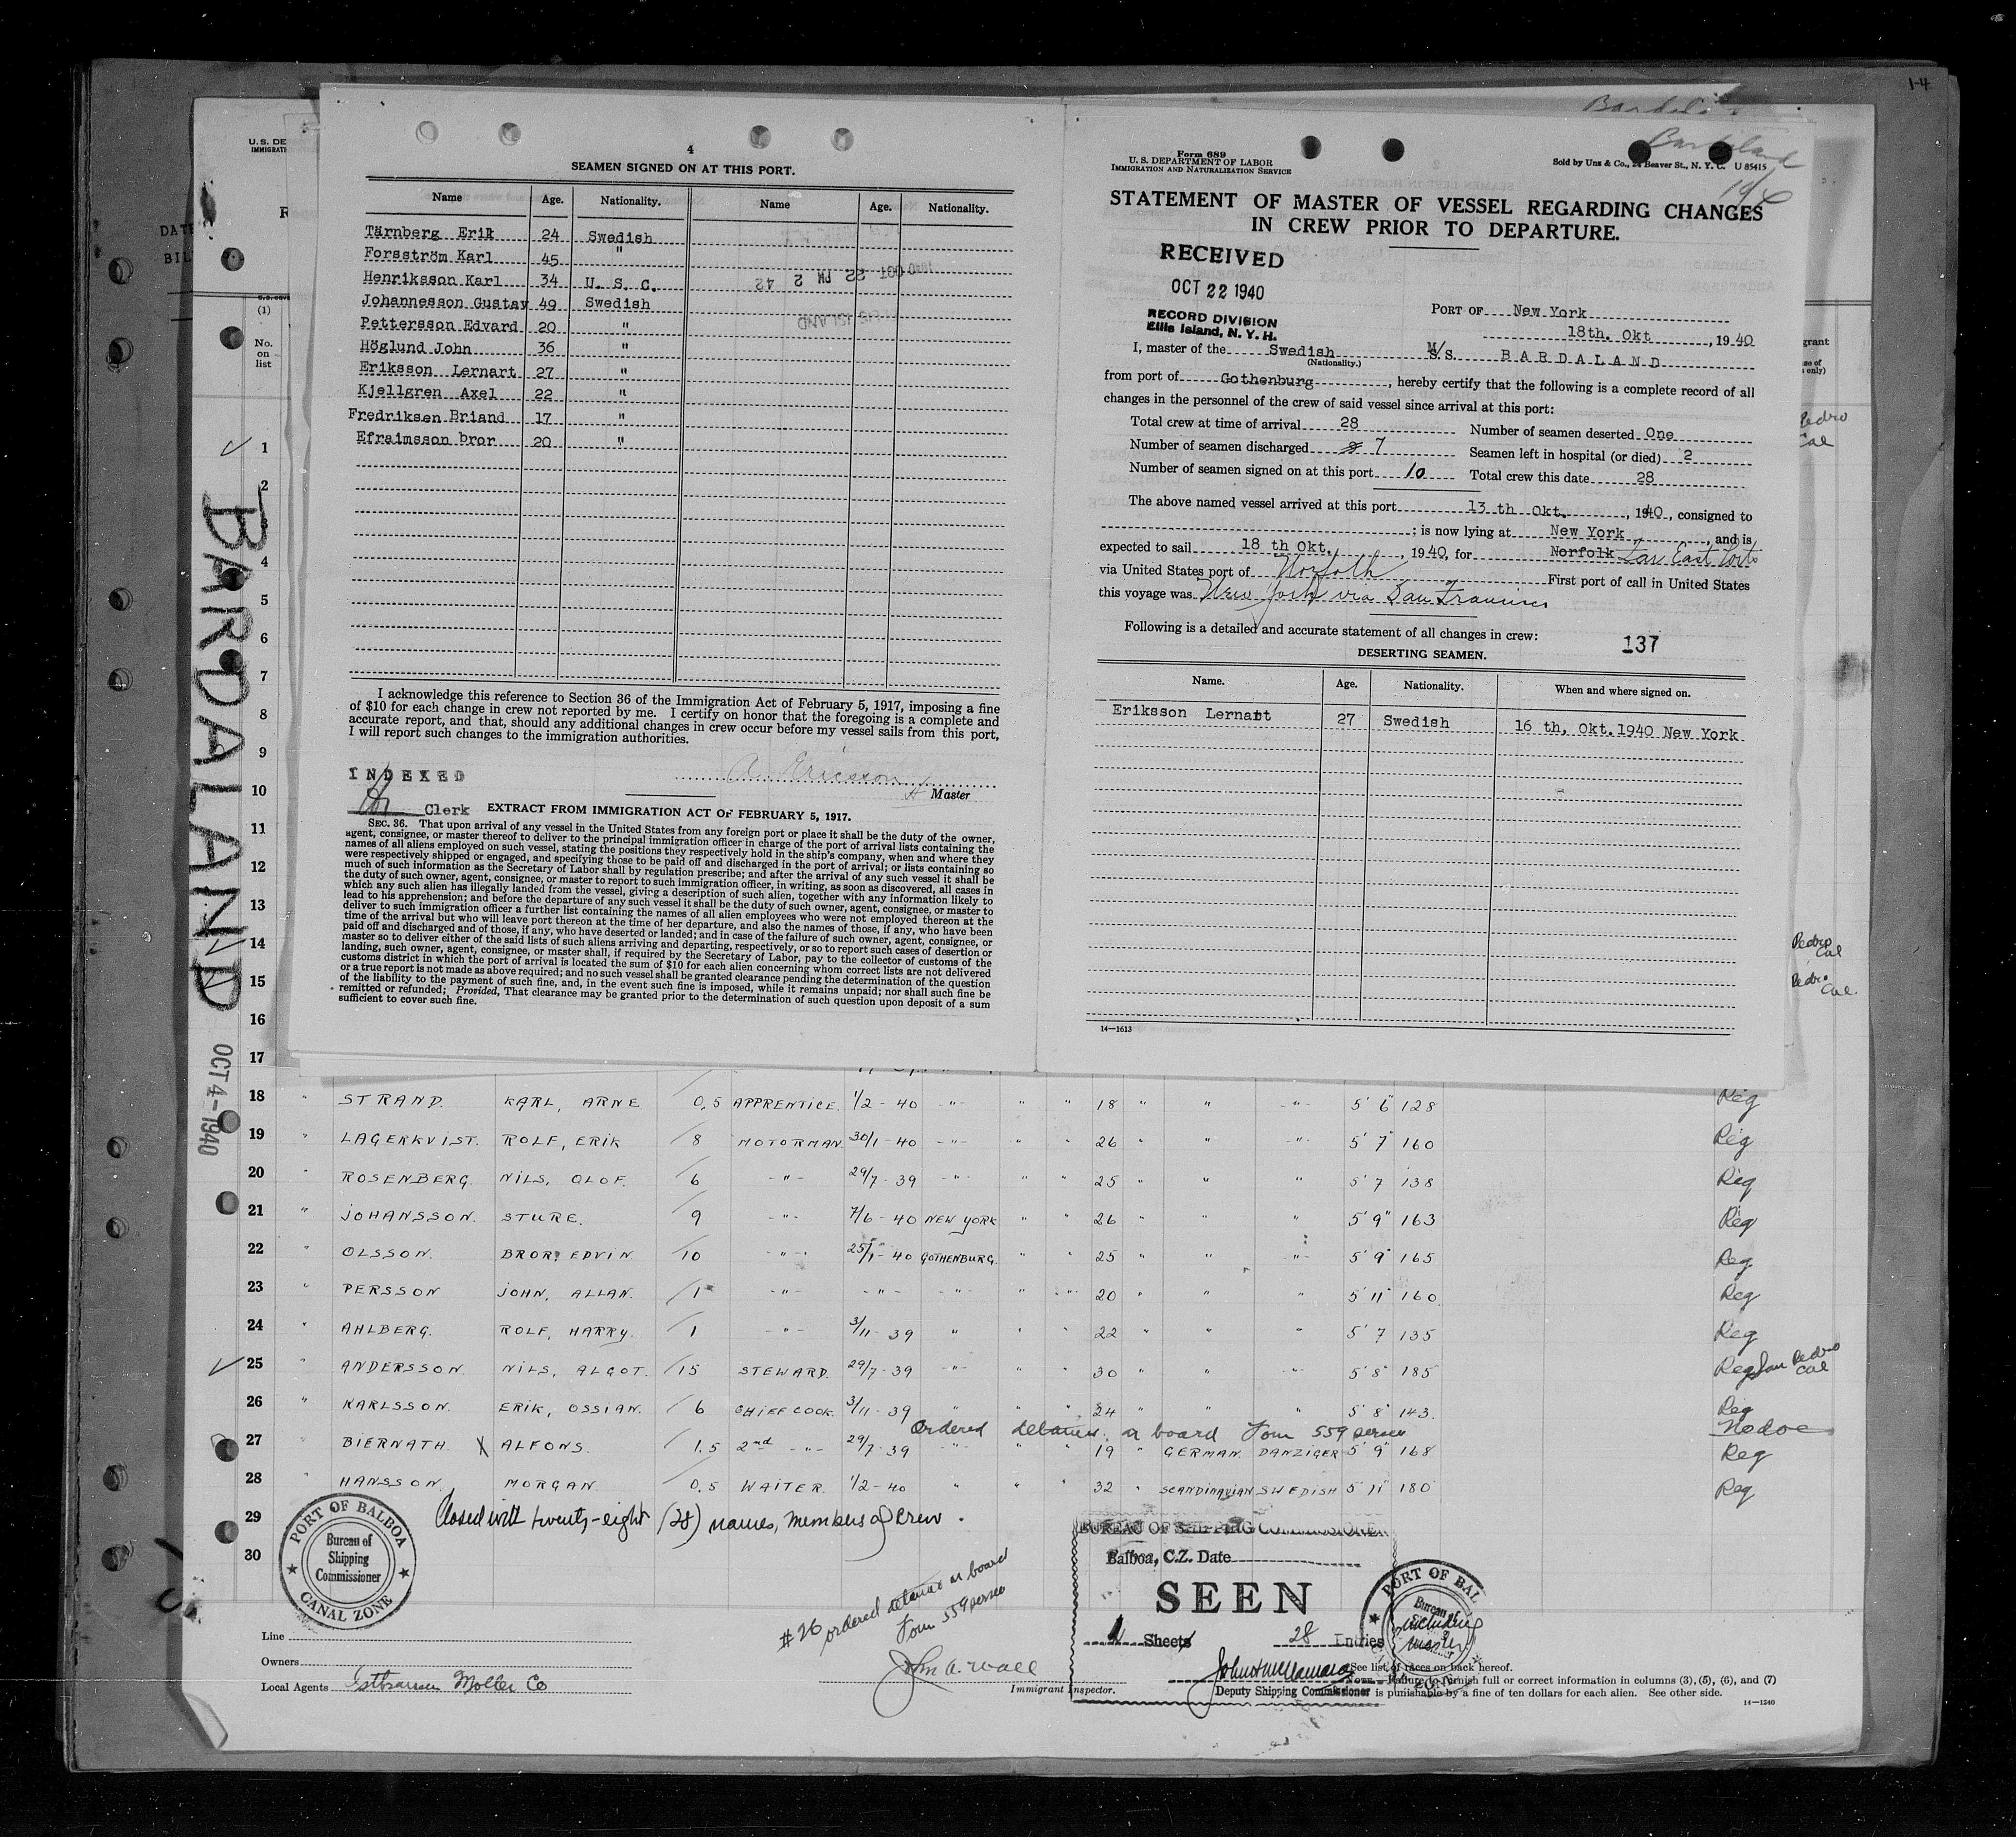 1-4
U.S. DE
IMMIGRATI
R
DATE
BIL
(1)
No.
on
list
4
SEAMEN SIGNED ON AT THIS PORT.
Name Age. Nationality. Name Age. Nationality.
Tärnberg Erik 24 Swedish
Forsström Karl 45 "
Henriksson Karl 34 U. S. C.
Johannesson Gustav 49 Swedish
Pettersson Edvard 20 "
Höglund John 36 "
Eriksson Lernart 27 "
Kjellgren Axel 22 "
Fredriksen Briand 17 "
Efraimsson bror 20 "
1940 OCT 22 PM 2 42
I acknowledge this reference to Section 36 of the Immigration Act of February 5, 1917, imposing a fine
of $10 for each change in crew not reported by me. I certify on honor that the foregoing is a complete and
accurate report, and that, should any additional changes in crew occur before my vessel sails from this port,
I will report such changes to the immigration authorities.
INDEXED
A. Ericsson
Master
Clerk
EXTRACT FROM IMMIGRATION ACT OF FEBRUARY 5, 1917.
SEC. 36. That upon arrival of any vessel in the United States from any foreign port or place it shall be the duty of the owner,
agent, consignee, or master thereof to deliver to the principal immigration officer in charge of the port of arrival lists containing the
names of all aliens employed on such vessel, stating the positions they respectively hold in the ship's company, when and where they
were respectively shipped or engaged, and specifying those to be paid off and discharged in the port of arrival; or lists containing so
much of such information as the Secretary of Labor shall by regulation prescribe; and after the arrival of any such vessel it shall be
the duty of such owner, agent, consignee, or master to report to such immigration officer, in writing, as soon as discovered, all cases in
which any such alien has illegally landed from the vessel, giving a description of such alien, together with any information likely to
lead to his apprehension; and before the departure of any such vessel it shall be the duty of such owner, agent, consignee, or master to
deliver to such immigration officer a further list containing the names of all alien employees who were not employed thereon at the
time of the arrival but who will leave port thereon at the time of her departure, and also the names of those, if any, who have been
paid off and discharged and of those, if any, who have deserted or landed; and in case of the failure of such owner, agent, consignee, or
master so to deliver either of the said lists of such aliens arriving and departing, respectively, or so to report such cases of desertion or
landing, such owner, agent, consignee, or master shall, if required by the Secretary of Labor, pay to the collector of customs of the
customs district in which the port of arrival is located the sum of $10 for each alien concerning whom correct lists are not delivered
or a true report is not made as above required; and no such vessel shall be granted clearance pending the determination of the question
of the liability to the payment of such fine, and, in the event such fine is imposed, while it remains unpaid; nor shall such fine be
remitted or refunded; Provided, That clearance may be granted prior to the determination of such question upon deposit of a sum
sufficient to cover such fine.
Bardaland
1940
Form 689
U. S. DEPARTMENT OF LABOR
IMMIGRATION AND NATURALIZATION SERVICE
Sold by Unz & Co., 24 Beaver St., N. Y. C. U 85415
STATEMENT OF MASTER OF VESSEL REGARDING CHANGES
IN CREW PRIOR TO DEPARTURE.
RECEIVED
OCT 22 1940
RECORD DIVISION
Ellis Island, N. Y. H.
PORT OF New York
18th. Okt , 1940
I, master of the Swedish M/S. BARDALAND
(Nationality.)
from port of Gothenburg , hereby certify that the following is a complete record of all
changes in the personnel of the crew of said vessel since arrival at this port:
Total crew at time of arrival 28 Number of seamen deserted One
Number of seamen discharged 8 7 Seamen left in hospital (or died) 2
Number of seamen signed on at this port 10 Total crew this date 28
The above named vessel arrived at this port 13 th Okt. , 1940, consigned to
; is now lying at New York , and is
expected to sail 18 th Okt. , 1940, for Norfolk Far East Ports
via United States port of Norfolk First port of call in United States
this voyage was New York via San Francisco
Following is a detailed and accurate statement of all changes in crew:
137
DESERTING SEAMEN.
Name. Age. Nationality. When and where signed on.
Eriksson Lernart 27 Swedish 16 th, Okt. 1940 New York
14—1613
BARDALAND
OCT 4-1940
1
2
3
4
5
6
7
8
9
10
11
12
13
14
15
16
17
grant
Pedro
Cal
Pedro
Cal
Pedro
Cal.
18 " STRAND. KARL, ARNE 0,5 APPRENTICE. 1/2-40 -"- " " 18 " " -"- 5' 6" 128 Reg
19 " LAGERKVIST. ROLF, ERIK 8 MOTORMAN. 30/1-40 -"- " " 26 " " -"- 5' 7" 160 Reg
20 " ROSENBERG. NILS, OLOF. 6 -"- 29/7-39 -"- " " 25 " " " 5' 7 138 Reg
21 " JOHANSSON. STURE. 9 -"- 7/6-40 NEW YORK " " 26 " " " 5' 9" 163 Reg
22 " OLSSON. BROR, EDVIN. 10 -"- 25/1-40 GOTHENBURG. " " 25 " " " 5' 9" 165 Reg
23 " PERSSON JOHN, ALLAN. 1 -"- -"- -"- " " 20 " " " 5' 11" 160 Reg
24 " AHLBERG. ROLF, HARRY. 1 -"- 3/11-39 " " " 22 " " " 5' 7 135 Reg
25 " ANDERSSON. NILS, ALGOT. 15 STEWARD. 29/7-39 -"- " " 30 " " " 5' 8" 185 Reg San Pedro Cal
26 " KARLSSON. ERIK, OSSIAN. 6 CHIEF COOK. 3/11-39 " " " 24 " " " 5' 8" 143. Reg
Ordered detained a board Form 559 served
27 " BIERNATH. X ALFONS. 1,5 2nd -"- 29/7-39 -"- " " 19 " GERMAN. DANZIGER 5' 9" 168 Reg
28 " HANSSON. MORGAN 0,5 WAITER. 1/2-40 " " " 32 " SCANDINAVIAN SWEDISH 5' 11" 180 Reg
29 Closed with twenty-eight (28) names, members of crew.
30
PORT OF BALBOA
Bureau of
Shipping
Commissioner
CANAL ZONE
#26 ordered detained on board
Form 559 served
John A. Wall
Immigrant Inspector.
BUREAU OF SHIPPING COMMISSIONER
Balboa, C.Z. Date
SEEN
1 Sheets 28 Entries
including
master
Deputy Shipping Commissioner
PORT OF BAL
Bureau of
Line
Owners
Local Agents
See list of races on back hereof.
NOTE.—Failure to furnish full or correct information in columns (3), (5), (6), and (7)
is punishable by a fine of ten dollars for each alien. See other side.
14—1240